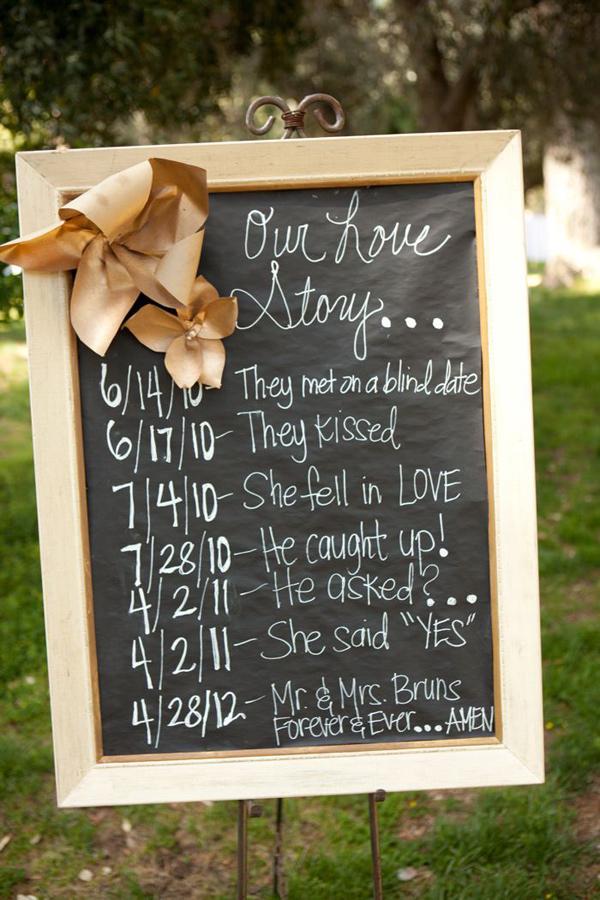 Our Love
Story...
6/14/10 - They met on a blind date
6/17/10 - They kissed
7/4/10 - She fell in LOVE
7/28/10 - He caught up!
4/2/11 - He asked?...
4/2/11 - She said "YES"
4/28/12 - Mr. & Mrs. Bruns
Forever & Ever... AMEN